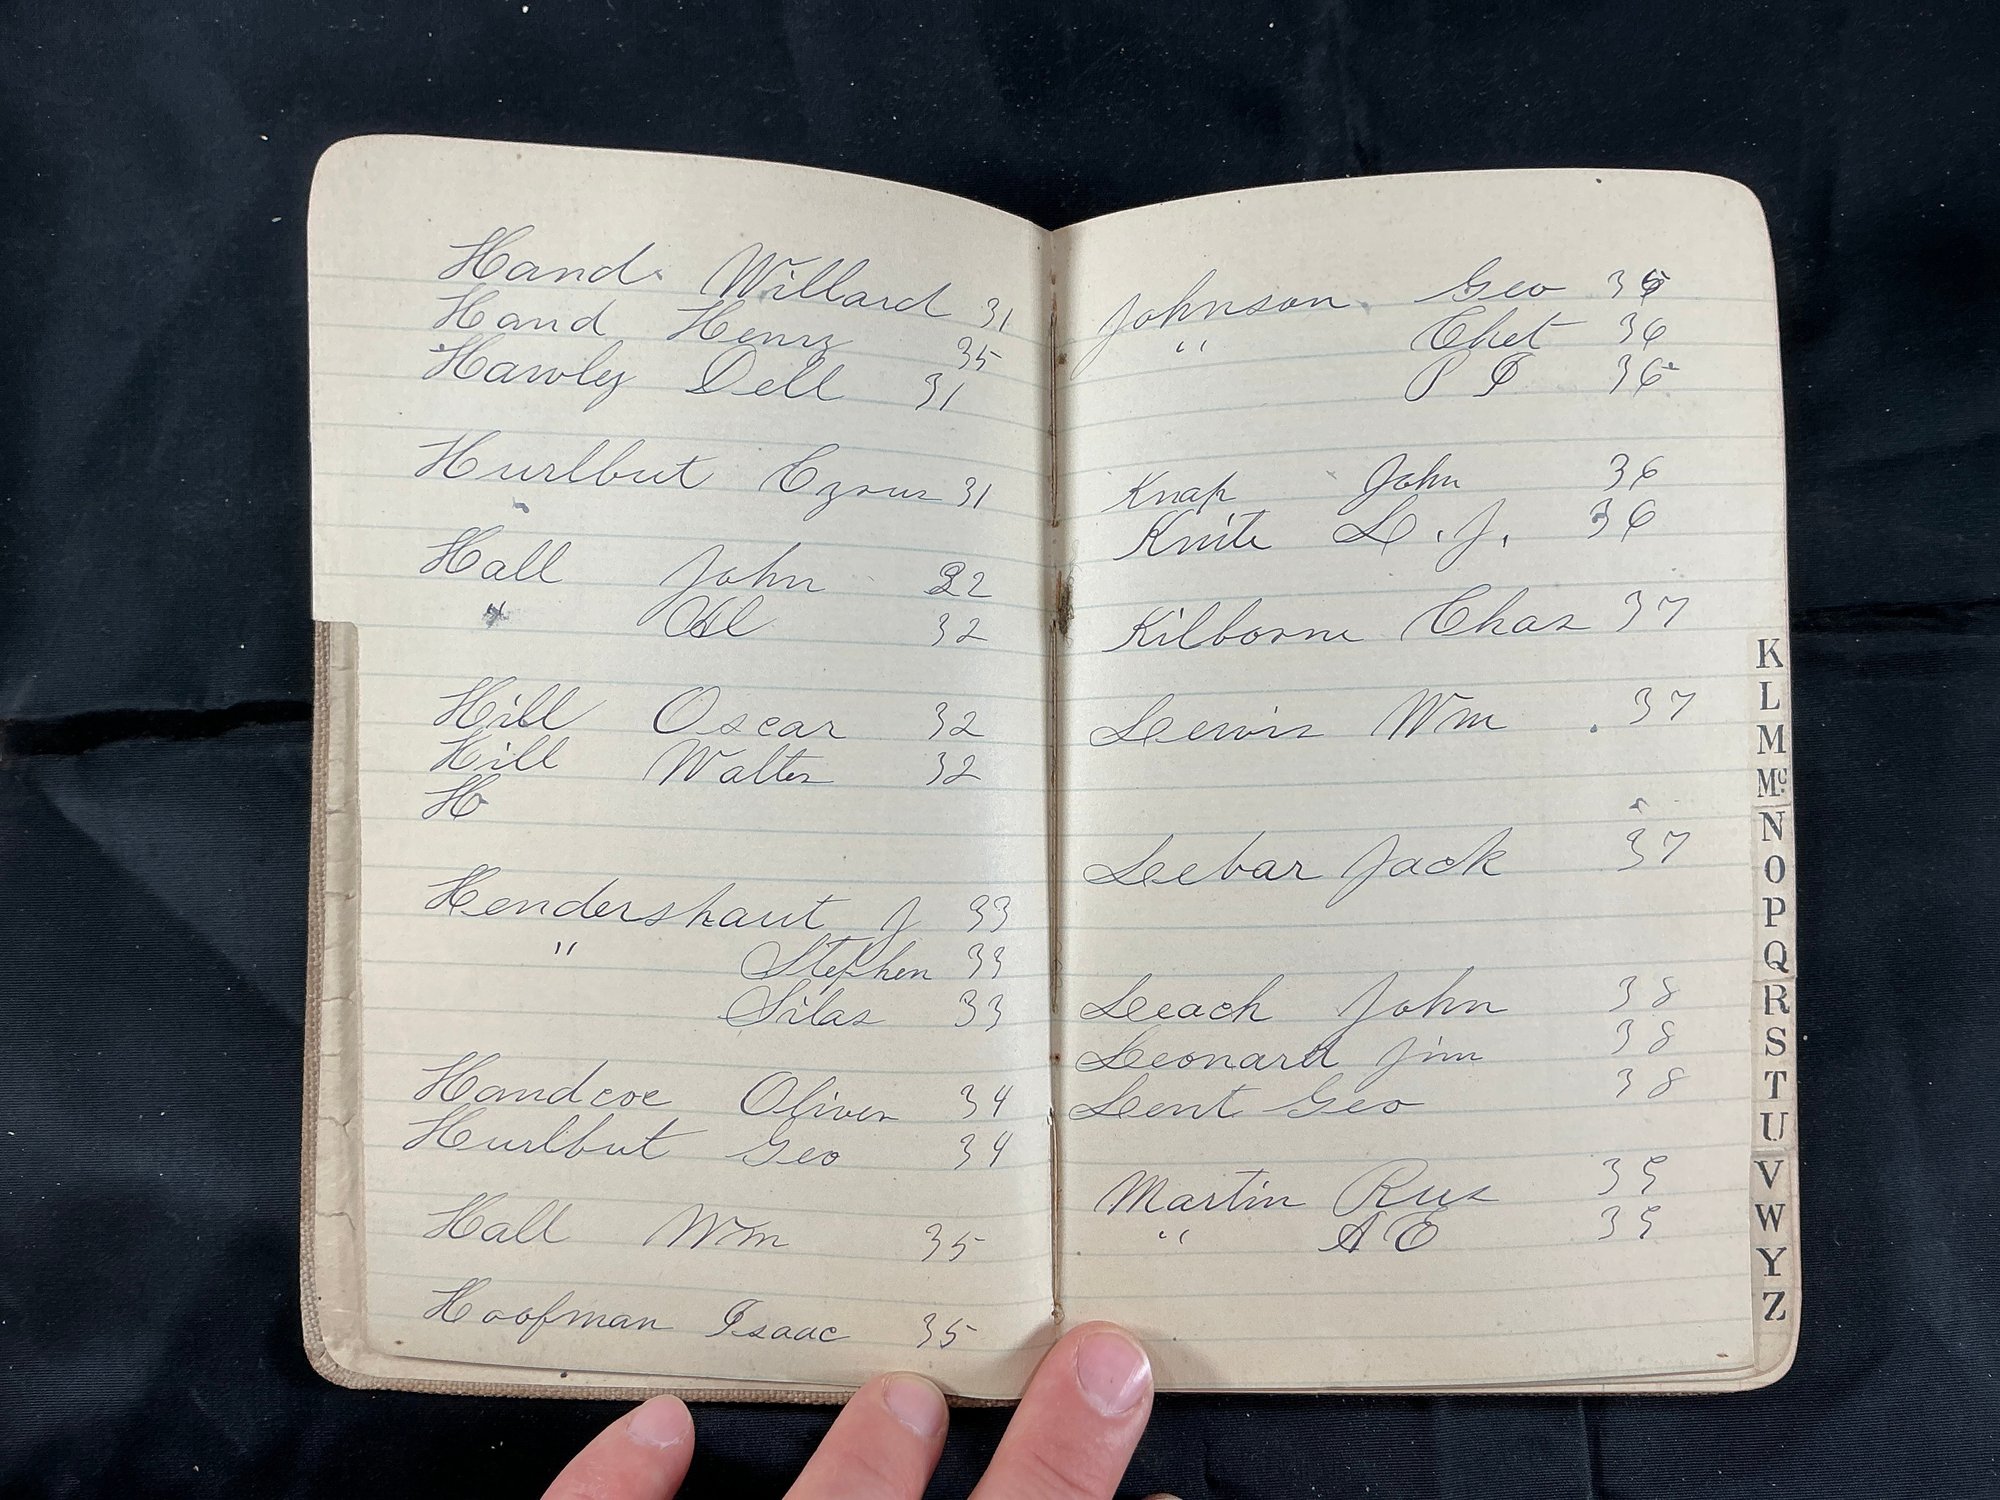 Hand Willard 31
Hand Henry 35
Hawley Dell 31
Hurlbut Cyrus 31
Hall John 32
" Al 32
Hill Oscar 32
Hill Walter 32
H
Hendershaut J 33
" Stephen 33
Silas 33
Handcoe Oliver 34
Hurlbut Geo 34
Hall Wm 35
Hoofman Isaac 35
Johnson Geo 36
" Chet 36
P I 36
Knap John 36
Knite L. J. 36
Kilborne Chas 37
Lewis Wm 37
Leebar Jack 37
Leach John 38
Leonard Jim 38
Lent Geo 38
Martin Rus 39
" A E 39
K
L
M
Mc
N
O
P
Q
R
S
T
U
V
W
Y
Z